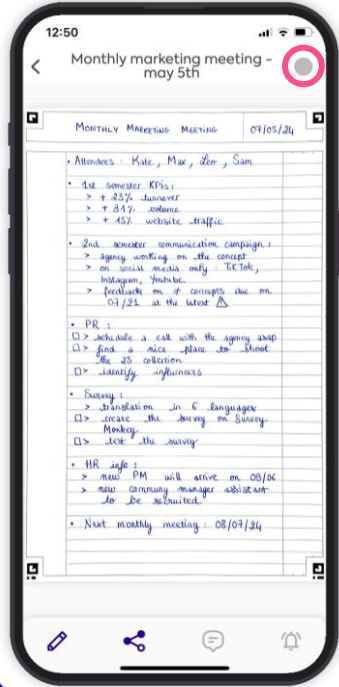 12:50
Monthly marketing meeting -
may 5th
MONTHLY MARKETING MEETING 07/05/24
• Attendees : Kate, Max, Leo, Sam
• 1st semester KPIs :
> + 23% turnover
> + 31% volume
> + 45% website traffic
• 2nd semester communication campaign :
> agency working on the concept
> on social media only : TikTok,
Instagram, Youtube
> feedback on ≠ concepts due on
07/21 at the latest ⚠
• PR :
☐ > schedule a call with the agency asap
☐ > find a nice place to shoot
the 25 collection
☐ > identify influencers
• Survey :
> translation in 6 languages
☐ > create the survey on Survey
Monkey
☐ > test the survey
• HR info :
> new PM will arrive on 09/06
> new communy manager assistant
to be recruited
• Next monthly meeting : 08/07/24